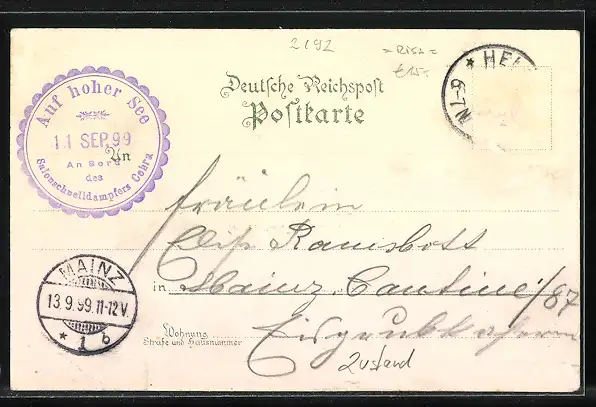 2192
= Rish =
€ 15.-
Deutsche Reichspost
Postkarte
Auf hoher See
11 SEP. 99
An Bord
des
Salonschnelldampfers Cobra
* HEL
N 7-9
An
Fräulein
Elis Ramsbott
in Mainz, Cantine /87
Wohnung
Straße und Hausnummer
Eisgrubkaserne
Zustand
MAINZ
13.9.99.11-12V.
* 1 b